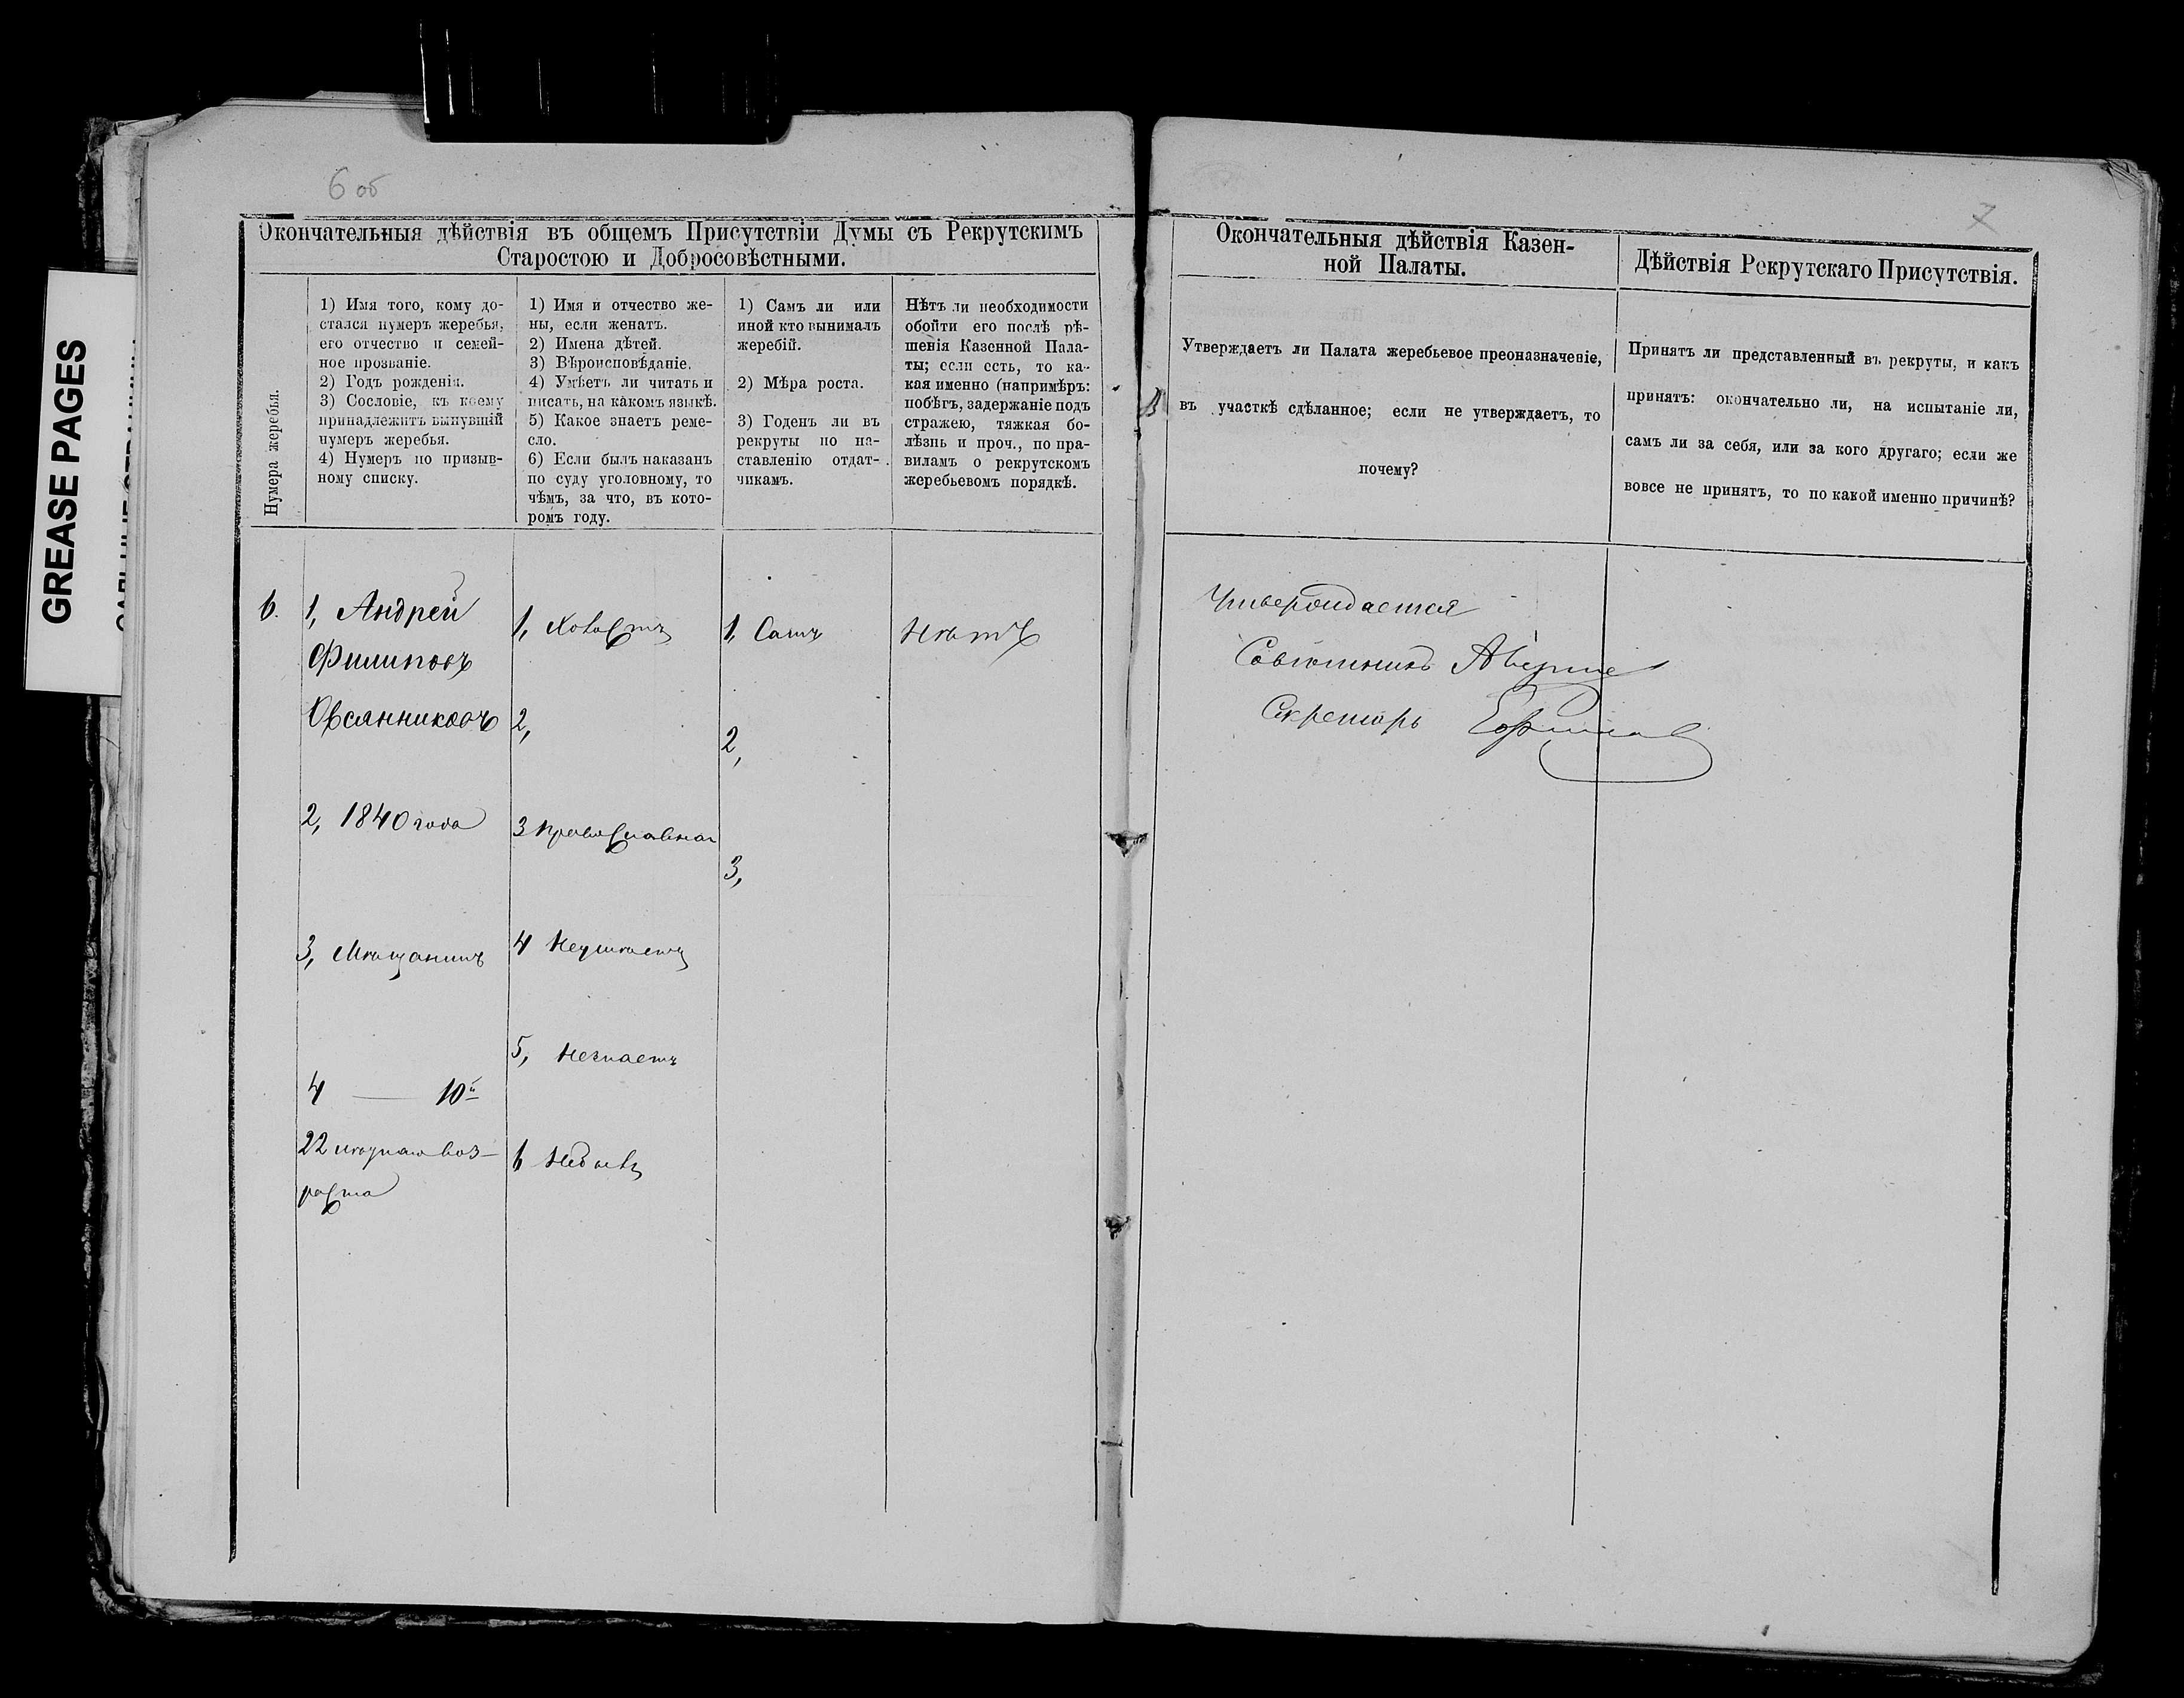 GREASE PAGES
6 об
7
Окончательныя дѣйствія въ общемъ Присутствіи Думы съ Рекрутскимъ
Старостою и Добросовѣстными.
Нумера жеребья.
1) Имя того, кому до-
стался нумеръ жеребья,
его отчество и семей-
ное прозваніе.
2) Годъ рожденія.
3) Сословіе, къ коему
принадлежитъ вынувшій
нумеръ жеребья.
4) Нумеръ по призыв-
ному списку.
1) Имя и отчество же-
ны, если женатъ.
2) Имена дѣтей.
3) Вѣроисповѣданіе.
4) Умѣетъ ли читать и
писать, на какомъ языкѣ.
5) Какое знаетъ реме-
сло.
6) Если былъ наказанъ
по суду уголовному, то
чѣмъ, за что, въ кото-
ромъ году.
1) Самъ ли или
иной кто вынималъ
жеребій.
2) Мѣра роста.
3) Годенъ ли въ
рекруты по на-
ставленію отдат-
чикамъ.
Нѣтъ ли необходимости
обойти его послѣ рѣ-
шенія Казенной Пала-
ты; если есть, то ка-
кая именно (напримѣръ:
побѣгъ, задержаніе подъ
стражею, тяжкая бо-
лѣзнь и проч., по пра-
виламъ о рекрутскомъ
жеребьевомъ порядкѣ.
6.
1, Андрей
Филиповъ
Овсянниковъ
2, 1840 года
3, Мѣщанинъ
4 — 10й
22 лѣтняго воз-
раста
1, Холостъ
2,
3 Православнаго
4 Неумѣетъ
5, Незнаетъ
6 Небылъ
1, Самъ
2,
3,
Нѣтъ
Окончательныя дѣйствія Казен-
ной Палаты.
Утверждаетъ ли Палата жеребьевое преоназначеніе,
въ участкѣ сдѣланное; если не утверждаетъ, то
почему?
Утверждается
Совѣтникъ
Секретарь
Дѣйствія Рекрутскаго Присутствія.
Принятъ ли представленный въ рекруты, и какъ
принятъ: окончательно ли, на испытаніе ли,
самъ ли за себя, или за кого другаго; если же
вовсе не принятъ, то по какой именно причинѣ?